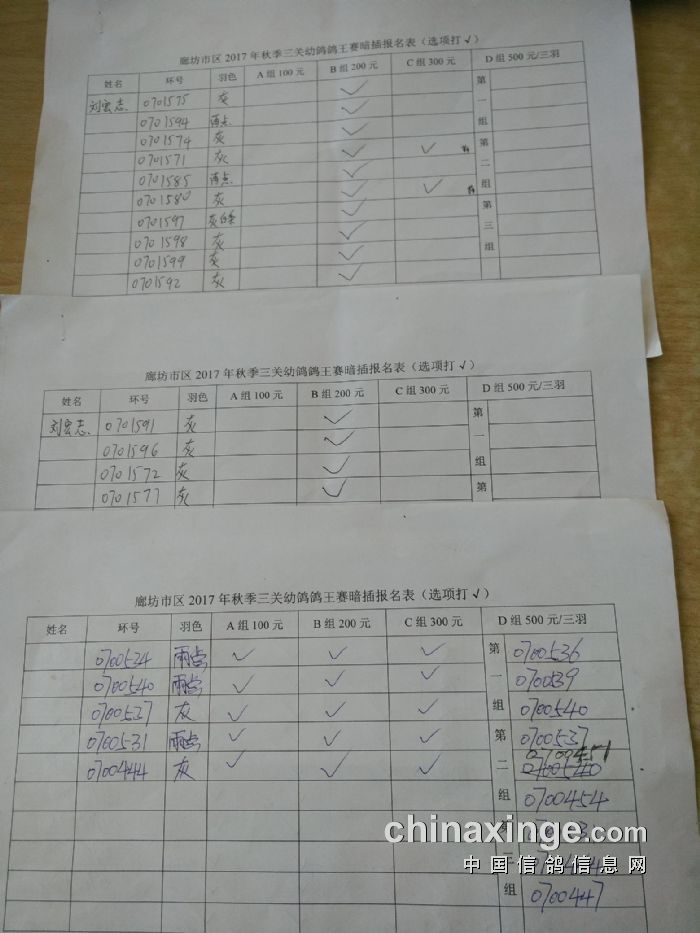 廊坊市区 2017 年秋季三关幼鸽鸽王赛暗插报名表（选项打 √）
姓名 环号 羽色 A 组 100 元 B 组 200 元 C 组 300 元 D 组 500 元/三羽
刘宏志 0701575 灰 √ 第
0701594 雨点 √ 一
0701574 灰 √ 组
0701571 灰 √ √ 第
0701585 雨点 √ 二
0701580 灰 √ √ 组
0701597 灰 √ 第
0701598 灰 √ 三
0701599 灰 √ 组
0701592 灰 √
廊坊市区 2017 年秋季三关幼鸽鸽王赛暗插报名表（选项打 √）
姓名 环号 羽色 A 组 100 元 B 组 200 元 C 组 300 元 D 组 500 元/三羽
刘宏志 0701591 灰 √ 第
0701596 灰 √ 一
0701572 灰 √ 组
0701577 灰 √ 第
廊坊市区 2017 年秋季三关幼鸽鸽王赛暗插报名表（选项打 √）
姓名 环号 羽色 A 组 100 元 B 组 200 元 C 组 300 元 D 组 500 元/三羽
0700534 雨点 √ √ √ 第 0700536
0700540 雨点 √ √ √ 一 070039
0700537 灰 √ √ √ 组 0700540
0700531 雨点 √ √ √ 第 0700537
0700451
0700444 灰 √ √ √ 二 0700540
组 0700454
三
组 0700447
chinaxinge.com
中国信鸽信息网